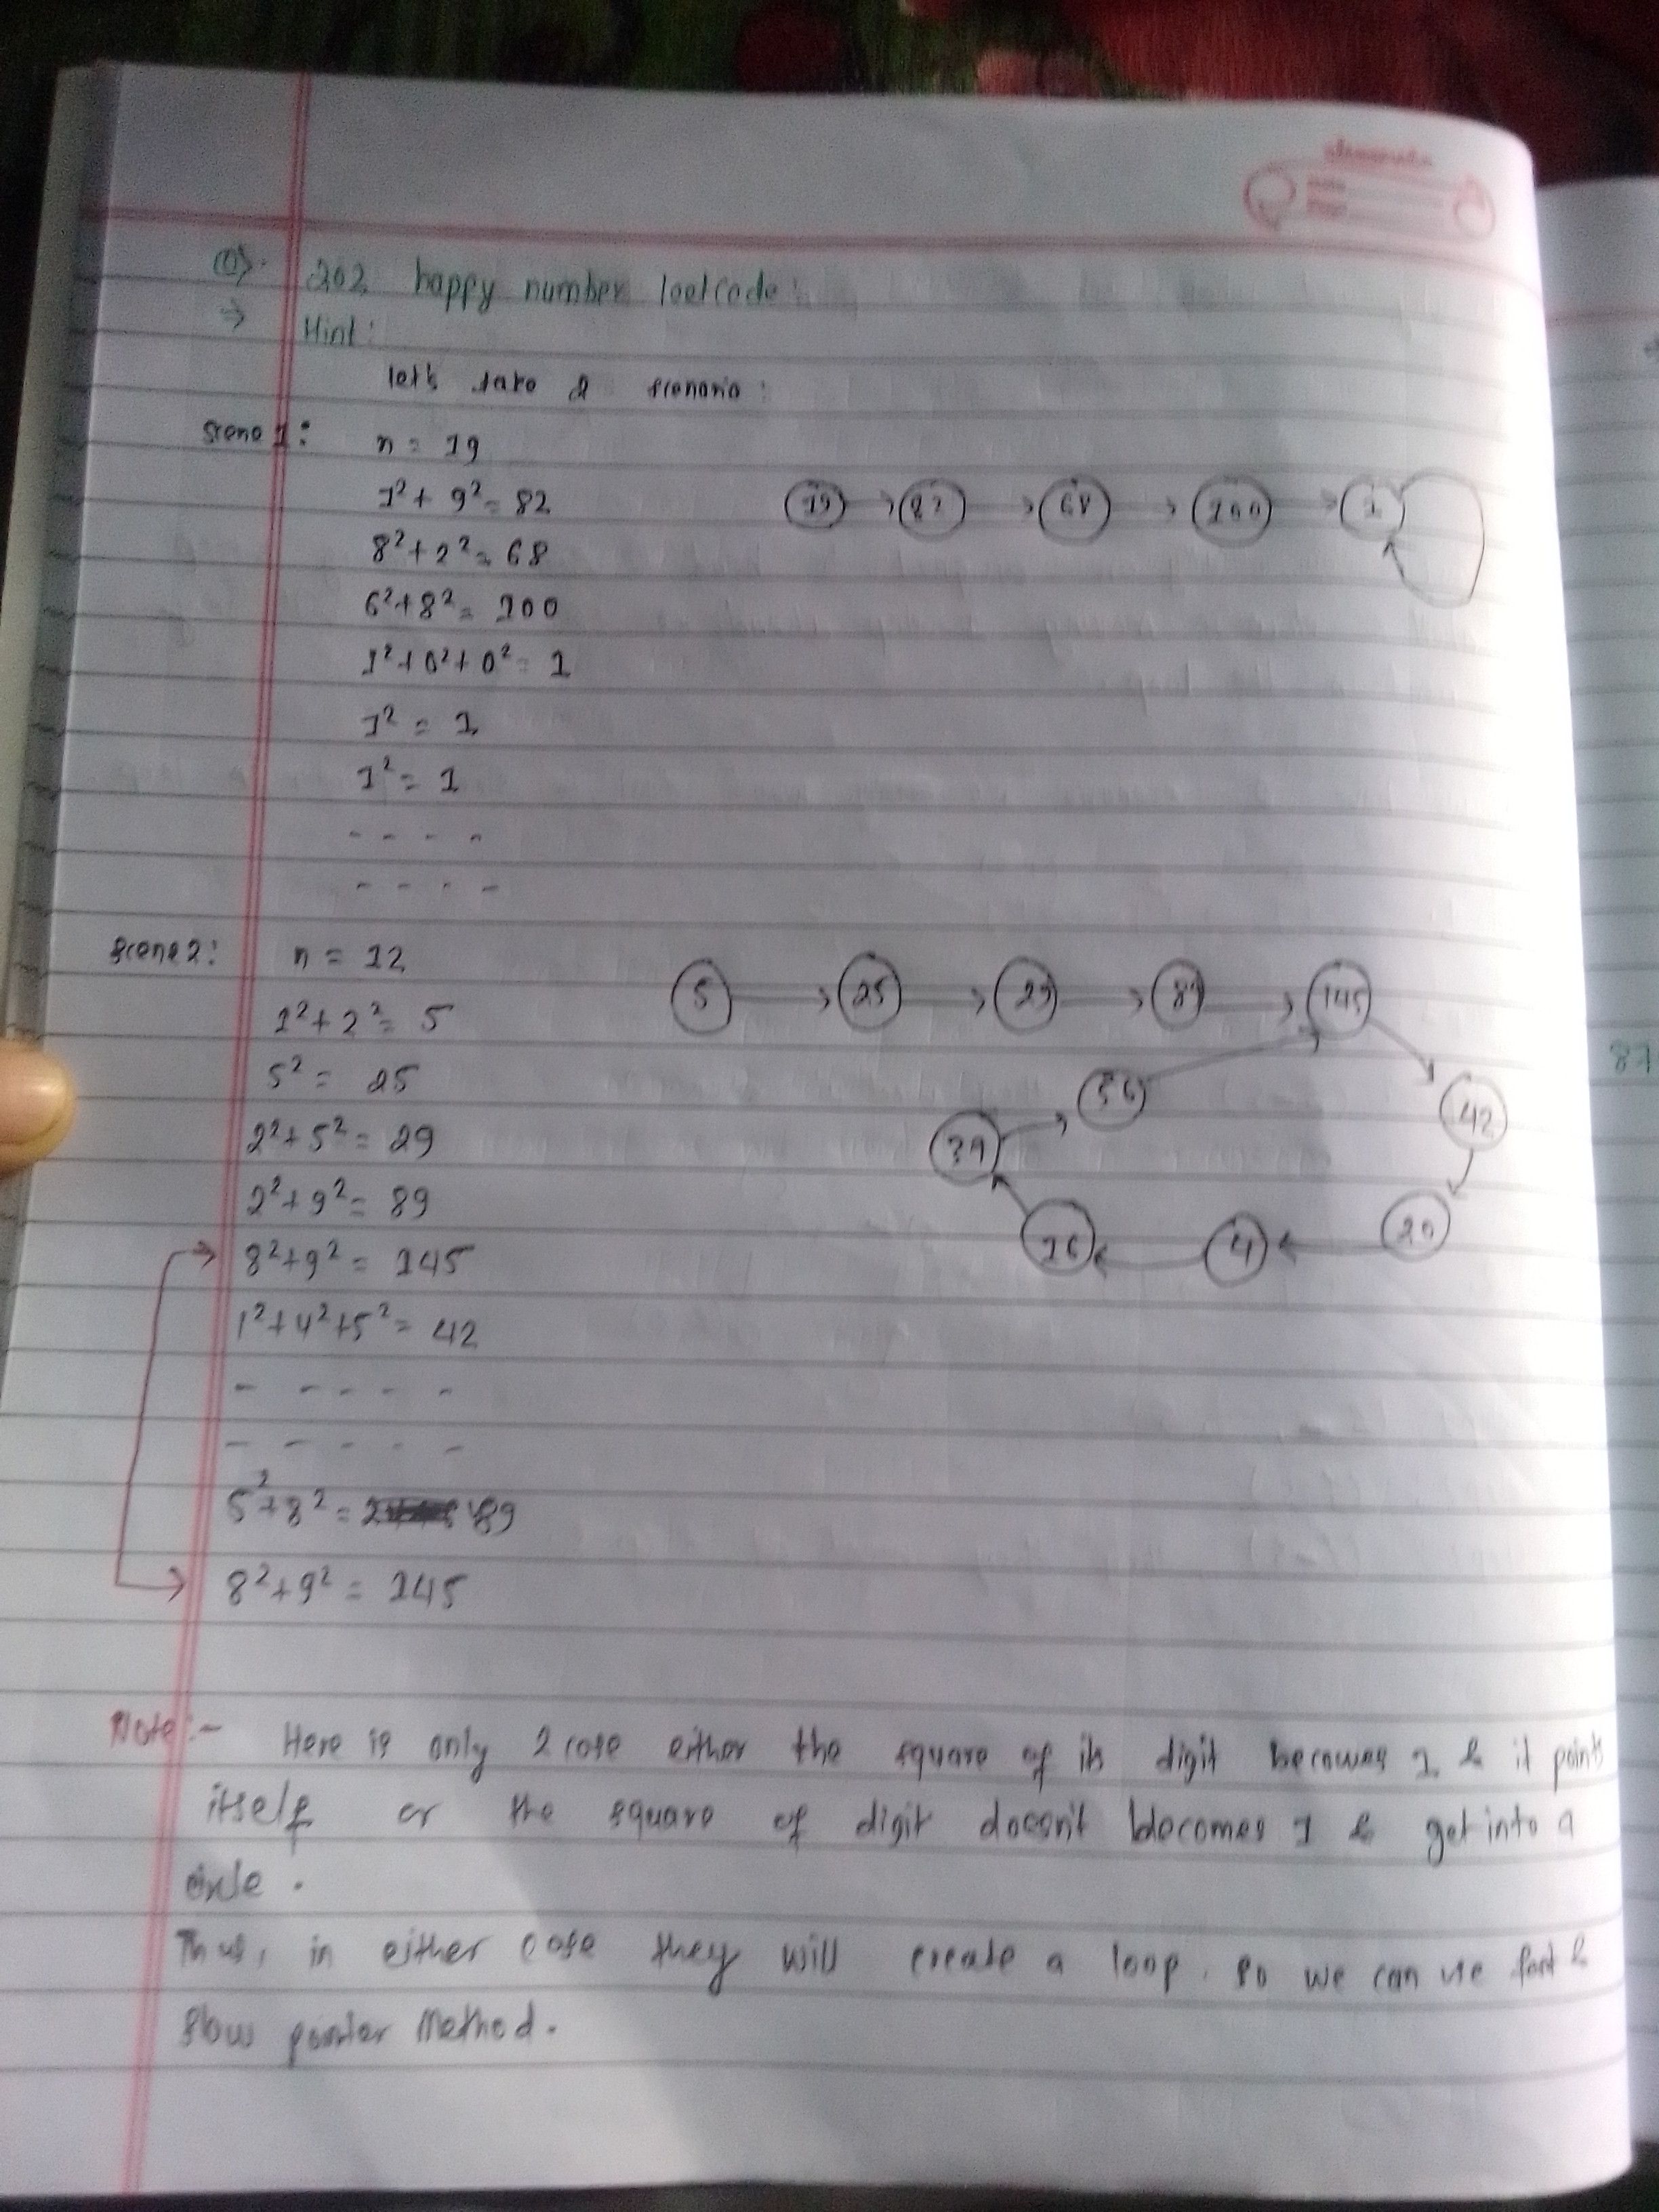 Q>. 202 happy number leetcode:
⇒ Hint:
let's take 2 scenario:
Scene 1: n = 19
1² + 9² = 82
8² + 2² = 68
6² + 8² = 100
1² + 0² + 0² = 1
1² = 1
1² = 1
- - - -
- - - -
19 → 82 → 68 → 100 → 1
Scene 2: n = 12
1² + 2² = 5
5² = 25
2² + 5² = 29
2² + 9² = 89
8² + 9² = 145
1² + 4² + 5² = 42
- - - - -
- - - - -
5² + 8² = 89
8² + 9² = 145
5 → 25 → 29 → 89 → 145
42
20
4
16
56
87
Note:- Here is only 2 case either the square of its digit becomes 1 & it points
itself or the square of digit doesn't becomes 1 & get into a
.
Thus, in either case they will create a loop. so we can use fast &
slow pointer Method.